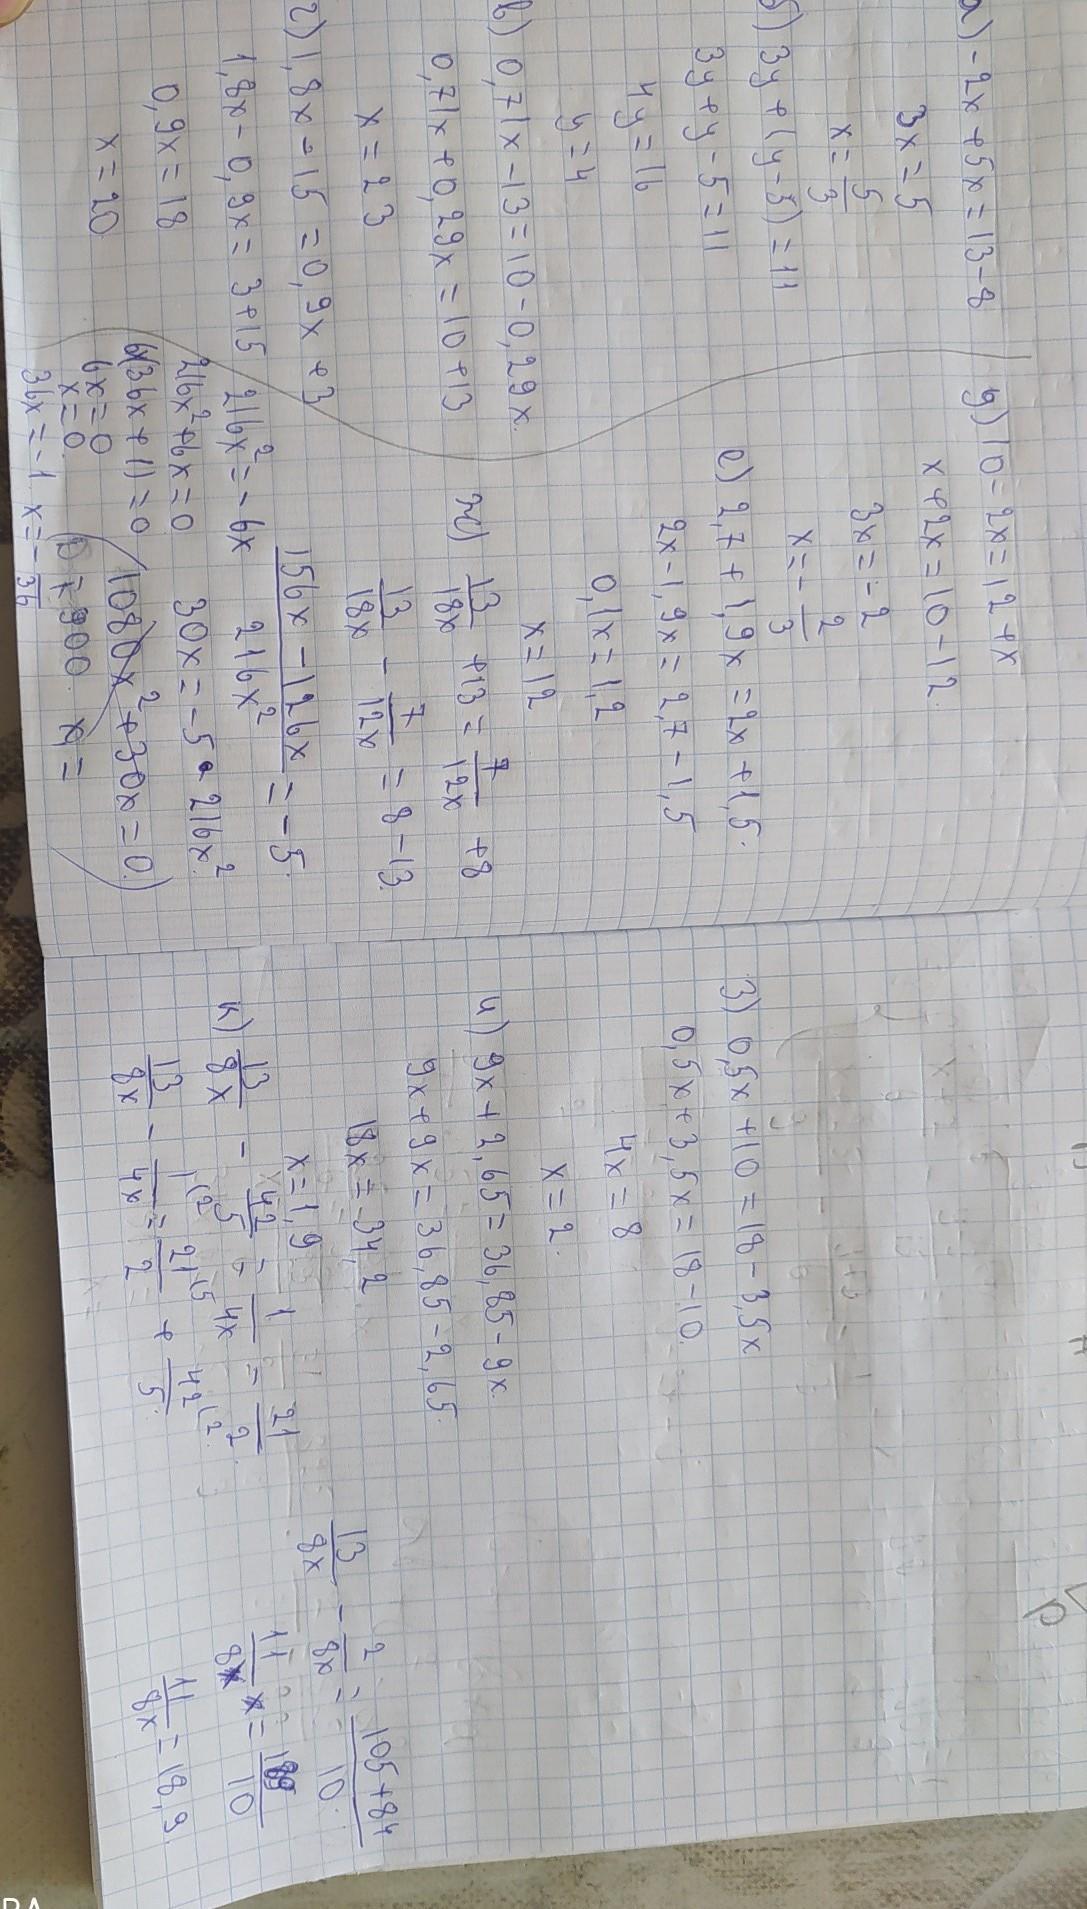 а) -2x + 5x = 13 - 8
3x = 5
x = 5/3
б) 3y + (y - 5) = 11
3y + y - 5 = 11
4y = 16
y = 4
в) 0,71x - 13 = 10 - 0,29x
0,71x + 0,29x = 10 + 13
x = 23
г) 1,8x - 15 = 0,9x + 3
1,8x - 0,9x = 3 + 15
0,9x = 18
x = 20
g) 10 - 2x = 12 + x
x + 2x = 10 - 12
3x = -2
x = - 2/3
е) 2,7 + 1,9x = 2x + 1,5
2x - 1,9x = 2,7 - 1,5
0,1x = 1,2
x = 12
ж) 13/18x + 13 = 7/12x + 8
13/18x - 7/12x = 8 - 13
156x - 126x / 216x² = -5
30x = -5 • 216x²
1080x² + 30x = 0
216x² = -6x
216x² + 6x = 0
6x(36x + 1) = 0
6x = 0
x = 0
36x = -1 x = - 1/36
D = 900 x =
з) 0,5x + 10 = 18 - 3,5x
0,5x + 3,5x = 18 - 10
4x = 8
x = 2
и) 9x + 2,65 = 36,85 - 9x
9x + 9x = 36,85 - 2,65
18x = 34,2
x = 1,9
к) 13/8x - 42/5 = 1/4x = 21/2
13/8x - 1(2/4x = 21(5/2 = + 42(2/5
13/8x - 2/8x = 105 + 84 / 10
11/8x x = 189/10
11/8x = 18,9